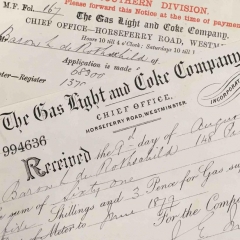 SOUTHERN DIVISION.
Please forward this Notice at the time of payment
M.P. Fol. 167
The Gas Light and Coke Company
CHIEF OFFICE—HORSEFERRY ROAD, WESTM
Hours 10 till 4 o'Clock; Saturdays 10 till
Baron L de Rothschild
Application is made
68300
Register 1370
The Gas Light and Coke Company
CHIEF OFFICE,
HORSEFERRY ROAD, WESTMINSTER
INCORPORA
994636
Received the day of August
Baron L de Rothschild 148
sum of Sixty one
Shillings and 3 Pence for Gas
Meter to June 1879
For the Compa